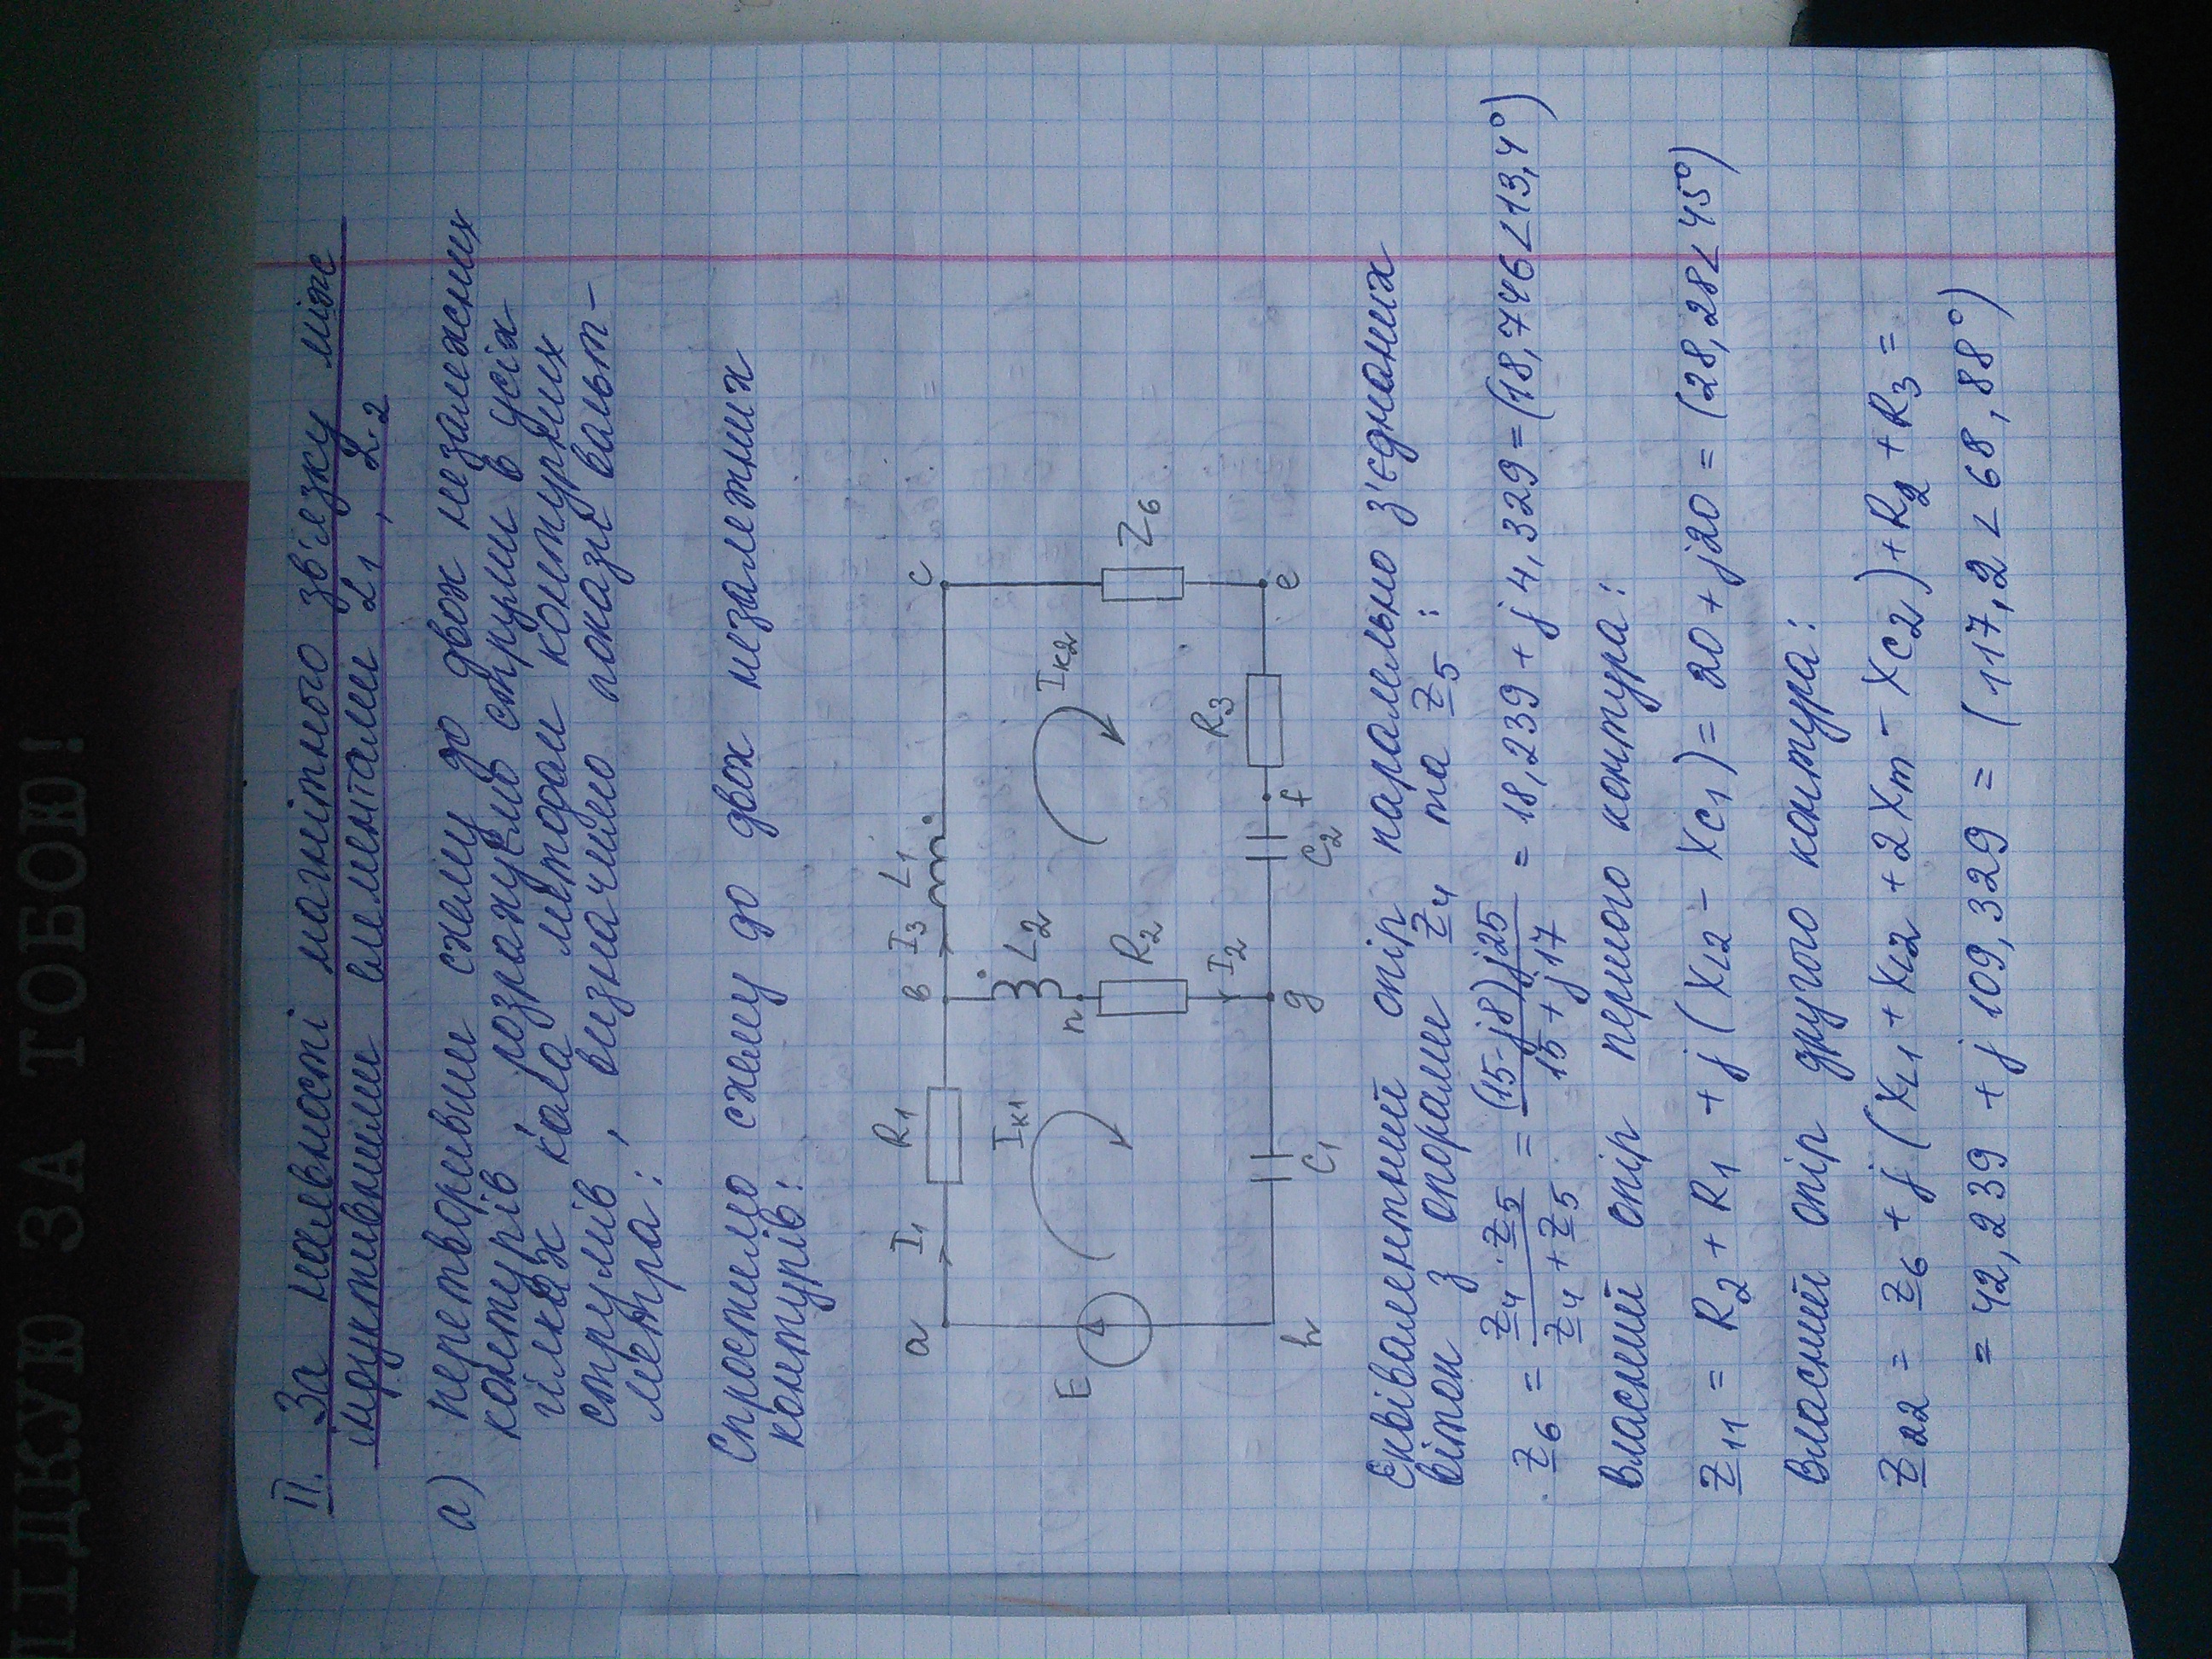 ІДКУЮ ЗА ТОБОЮ!
II. За наявності магнітного зв'язку між
індуктивними елементами L1, L2
а) перетворивши схему до двох незалежних
контурів розрахуємо струми в усіх
гілках кола методом контурних
струмів, визначимо покази вольт-
метра:
Спростимо схему до двох незалежних
контурів:
a I1 R1 в I3 L1 c
E Iк1 L2 Iк2 Z6
n R2
I2 R3
h C1 g C2 f e
Еквівалентний опір паралельно з'єднаних
віток з опорами Z4 та Z5:
Z6 = Z4 · Z5 / Z4 + Z5 = (15-j8)j25 / 15 + j17 = 18,239 + j4,329 = (18,746∠13,4°)
Власний опір першого контура:
Z11 = R2 + R1 + j(XL2 - XC1) = 20 + j20 = (28,28∠45°)
Власний опір другого контура:
Z22 = Z6 + j(XL1 + XL2 + 2Xm - XC2) + R2 + R3 =
= 42,239 + j109,329 = (117,2∠68,88°)